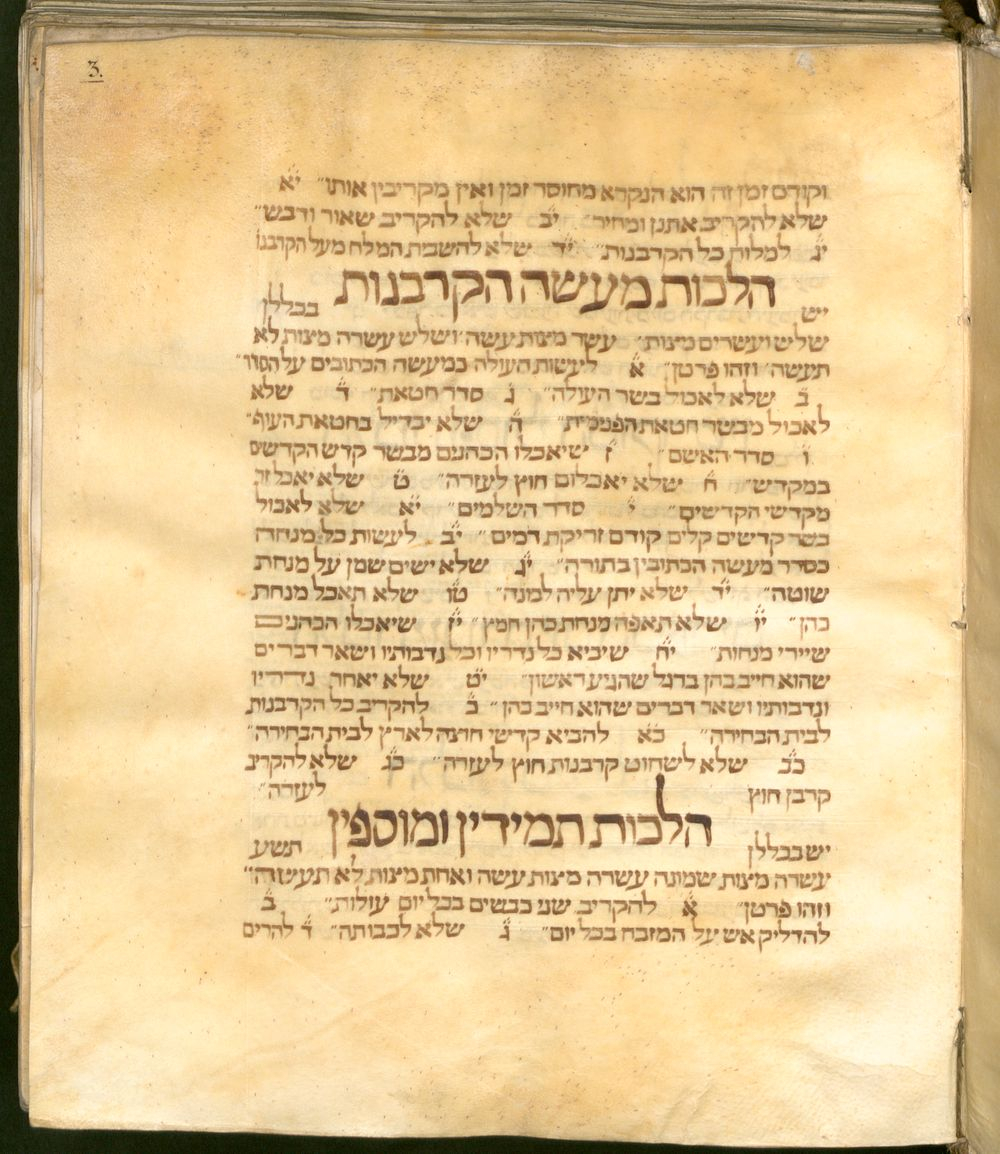 3.
וקודם זמן זה הוא הנקרא מחוסר זמן ואין מקריבין אותו״ י״א
שלא להקריב אתנן ומחיר״ י״ב שלא להקריב שאור ודבש״
י״ג למלוח כל הקרבנות״ י״ד שלא להשבית המלח מעל הקרבנו
הלכות מעשה הקרבנות
יש בכללן
שלש ועשרים מצות׳ עשר מצות עשה׳ ושלש עשרה מצות לא
תעשה׳ וזהו פרטן״ א׳ לעשות העולה כמעשה הכתובים על הסדר״
ב׳ שלא לאכול בשר העולה״ ג׳ סדר חטאת״ ד׳ שלא
לאכול מבשר חטאת הפנימית״ ה׳ שלא יבדיל בחטאת העוף״
ו׳ סדר האשם״ ז׳ שיאכלו הכהנים מבשר קדש הקדשים
במקדש״ ח׳ שלא יאכלום חוץ לעזרה״ ט׳ שלא יאכל זר
מקדשי הקדשים״ י׳ סדר השלמים״ י״א שלא לאכול
בשר קדשים קלים קודם זריקת דמים״ י״ב לעשות כל מנחה
כסדר מעשה הכתובין בתורה״ י״ג שלא ישים שמן על מנחת
שוטה״ י״ד שלא יתן עליה לבונה״ ט״ו שלא תאכל מנחת
כהן״ י״ו שלא תאפה מנחת כהן חמץ״ י״ז שיאכלו הכהנים
שיירי מנחות״ י״ח שיביא כל נדריו וכל נדבותיו ושאר דברים
שהוא חייב בהן ברגל שהגיע ראשון״ י״ט שלא יאחר נדריו
ונדבותיו ושאר דברים שהוא חייב בהן״ כ׳ להקריב כל הקרבנות
לבית הבחירה״ כ״א להביא קדשי חוצה לארץ לבית הבחירה״
כ״ב שלא לשחוט קרבנות חוץ לעזרה״ כ״ג שלא להקריב
קרבן חוץ לעזרה״
הלכות תמידין ומוספין
יש בכללן תשע
עשרה מצות שמונה עשרה מצות עשה ואחת מצות לא תעשה״
וזהו פרטן״ א׳ להקריב שני כבשים בכל יום עולות״ ב׳
להדליק אש על המזבח בכל יום״ ג׳ שלא לכבותה״ ד׳ להרים